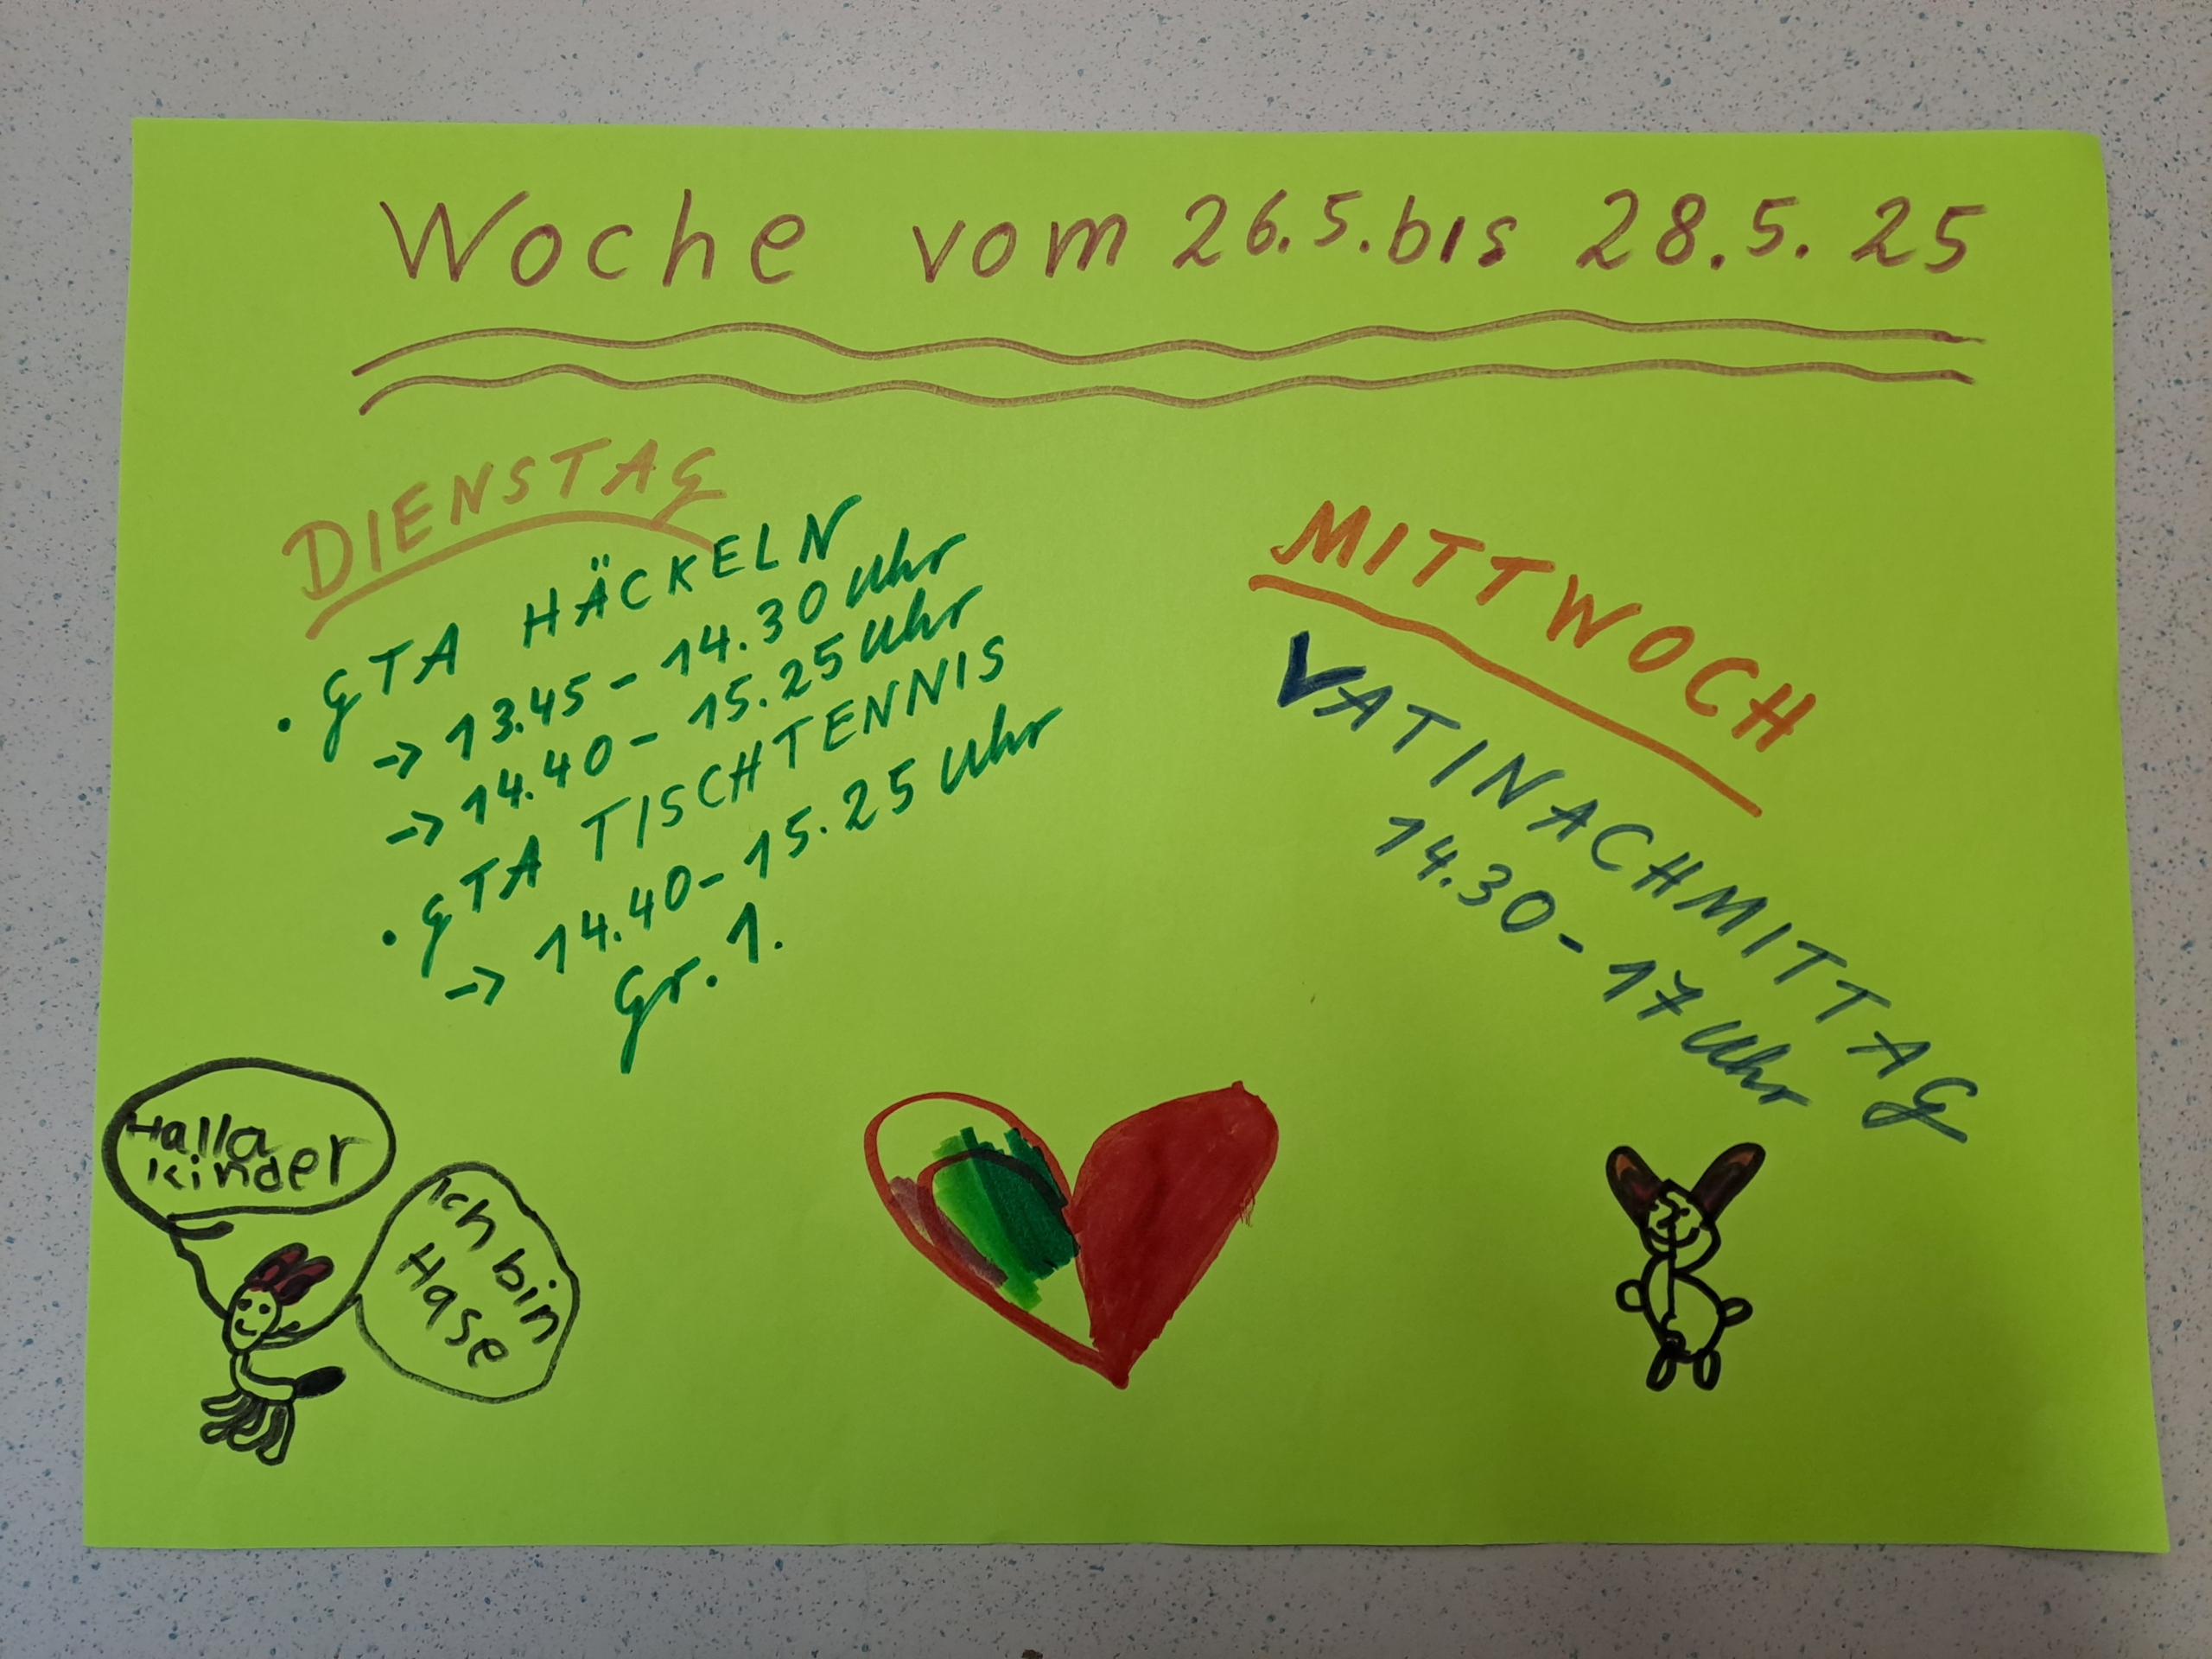 Woche vom 26.5. bis 28.5. 25
DIENSTAG
. GTA HÄCKELN
-> 13.45 - 14.30 Uhr
-> 14.40 - 15.25 Uhr
. GTA TISCHTENNIS
-> 14.40 - 15.25 Uhr
Gr. 1.
MITTWOCH
VATINACHMITTAG
14.30 - 17 Uhr
Halla
kinder
Ich bin
Hase